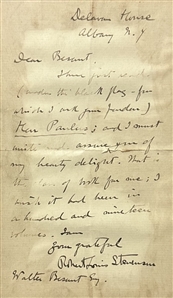 Delavan House
Albany N. Y
Dear Besant,
I have just read
under the black flag - for
which I ask your pardon)
Herr Paulus; and I must
write and assure you of
my hearty delight. That is
the of book for me; I
wish it had been in
a hundred and nineteen
volumes. I am
your grateful
Robert Louis Stevenson
Walter Besant Esq.